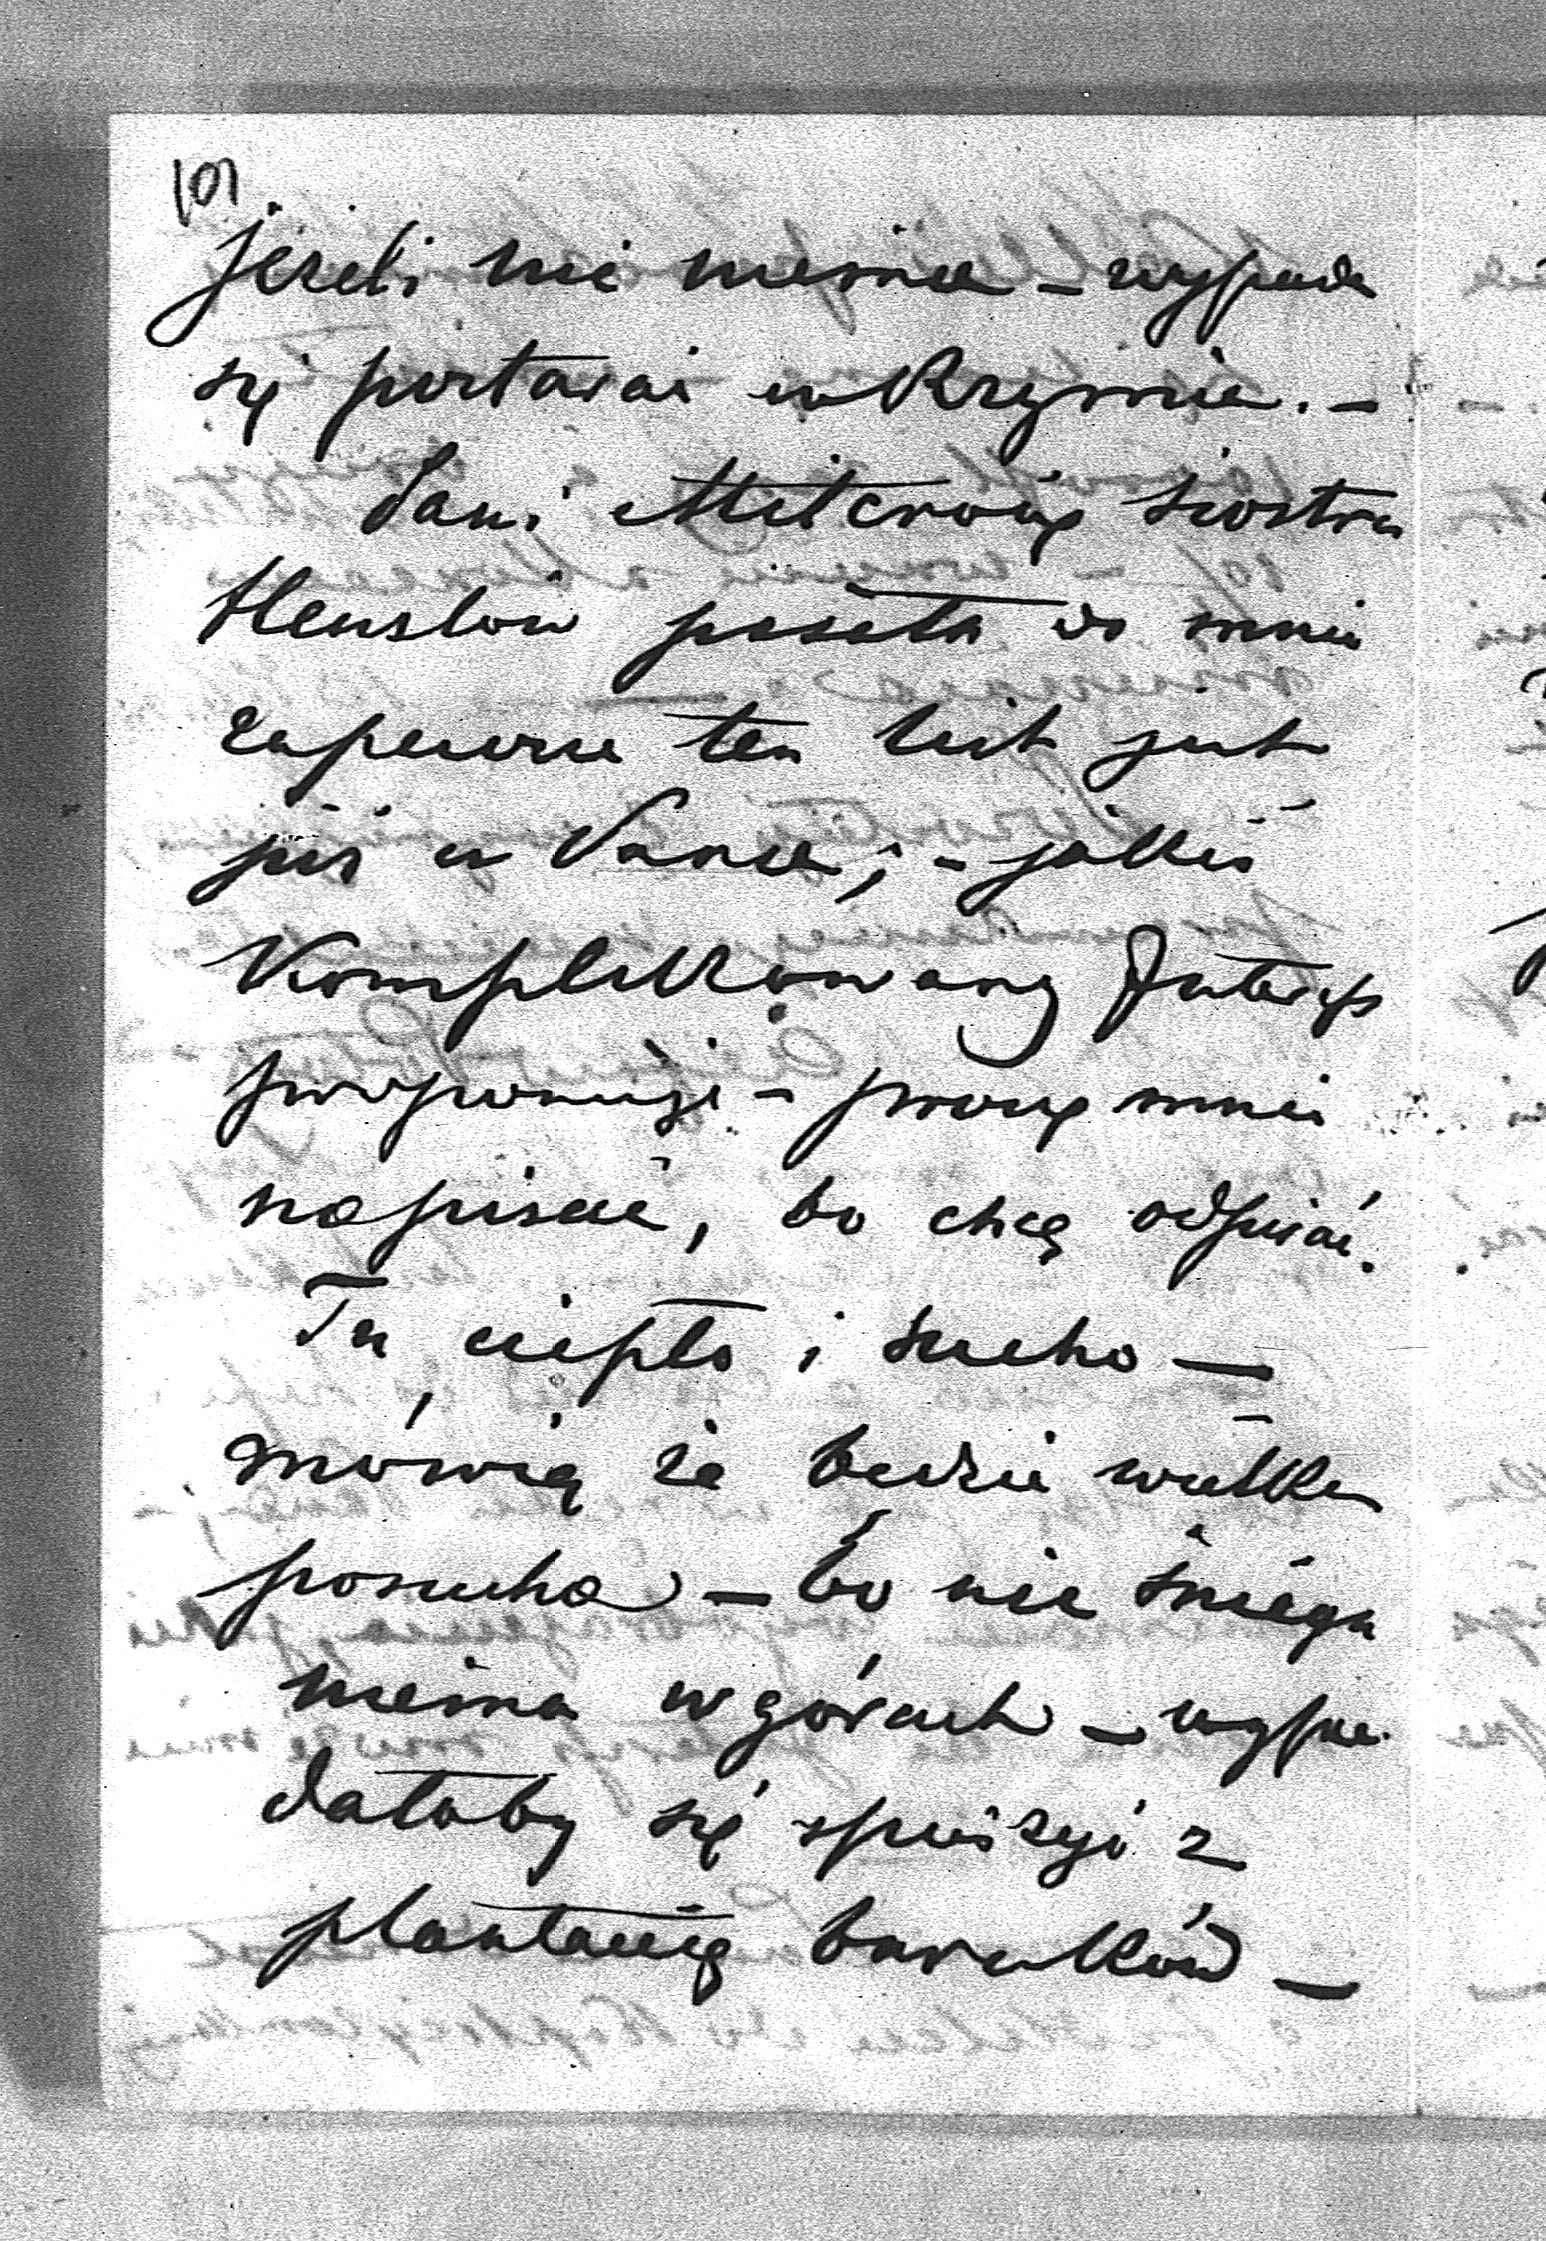 101
jeżeli nie niema – wypada
się postarać w Krymie. –
Pani siostra
posłała do mnie
zapewne ten list jest
już u Pana; – jakiś
Komplikowany Interes
proponuje – proszę mnie
napisać, bo chcę odpisać.
Tu ciepło i sucho –
mówią że będzie wielka
posucha – bo nie śniegu
niema w górach – wypa
dałoby się śpieszyć z
plantacią buraków –